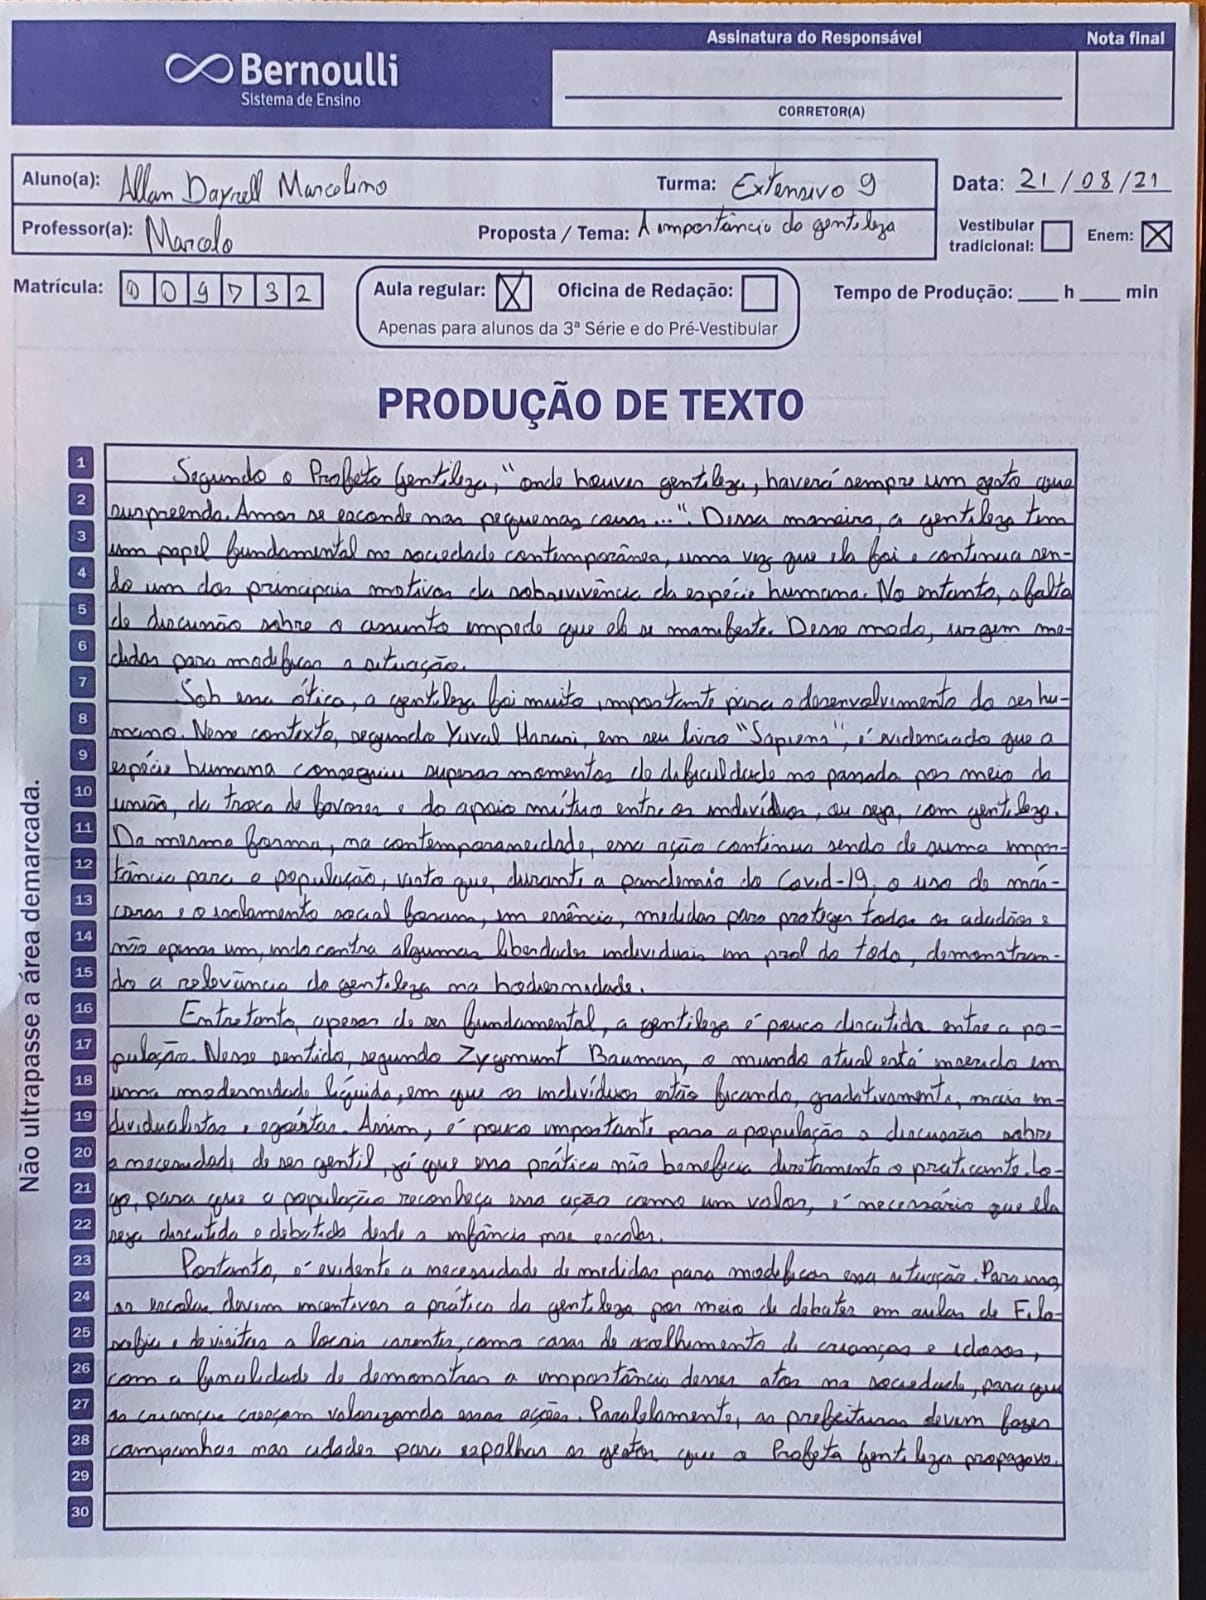 Bernoulli
Sistema de Ensino
Assinatura do Responsável
Nota final
CORRETOR(A)
Aluno(a): Allan Dayrell Marcolino
Turma: Extensivo 9
Data: 21/08/21
Professor(a): Marcelo
Proposta / Tema: A importância da gentileza
Vestibular tradicional:
Enem: X
Matrícula: 009732
Aula regular: X
Oficina de Redação:
Tempo de Produção: ____ h ____ min
Apenas para alunos da 3ª Série e do Pré-Vestibular
PRODUÇÃO DE TEXTO
Não ultrapasse a área demarcada.
1 Segundo o Profeta Gentileza, "onde houver gentileza, haverá sempre um gesto que
2 surpreenda. Amor se esconde nas pequenas coisas...". Dessa maneira, a gentileza tem
3 um papel fundamental na sociedade contemporânea, uma vez que ela foi e continua sen-
4 do um dos principais motivos da sobrevivência da espécie humana. No entanto, a falta
5 de discussão sobre o assunto impede que ela se manifeste. Desse modo, urgem me-
6 didas para modificar a situação.
7 Sob essa ótica, a gentileza foi muito importante para o desenvolvimento do ser hu-
8 mano. Nesse contexto, segundo Yuval Harari, em seu livro "Sapiens", é evidenciado que a
9 espécie humana conseguiu superar momentos de dificuldade no passado por meio da
10 união, da troca de favores e do apoio mútuo entre os indivíduos, ou seja, com gentileza.
11 Da mesma forma, na contemporaneidade, essa ação continua sendo de suma impor-
12 tância para a população, visto que, durante a pandemia do Covid-19, o uso de más-
13 caras e o isolamento social foram, em essência, medidas para proteger todos os cidadãos e
14 não apenas um, indo contra algumas liberdades individuais em prol do todo, demonstran-
15 do a relevância da gentileza na hodiernidade.
16 Entretanto, apesar de ser fundamental, a gentileza é pouco discutida entre a po-
17 pulação. Nesse sentido, segundo Zygmunt Bauman, o mundo atual está inserido em
18 uma modernidade líquida, em que os indivíduos estão ficando, gradativamente, mais in-
19 dividualistas e egoístas. Assim, é pouco importante para a população a discussão sobre
20 a necessidade de ser gentil, já que essa prática não beneficia diretamente o praticante. Lo-
21 go, para que a população reconheça essa ação como um valor, é necessário que ela
22 seja discutida e debatida desde a infância nas escolas.
23 Portanto, é evidente a necessidade de medidas para modificar essa situação. Para isso,
24 as escolas devem incentivar a prática da gentileza por meio de debates em aulas de Filo-
25 sofia e de visitas a locais carentes, como casas de acolhimento de crianças e idosos,
26 com a finalidade de demonstrar a importância desses atos na sociedade, para que
27 as crianças cresçam valorizando essas ações. Paralelamente, as prefeituras devem fazer
28 campanhas nas cidades para espalhar os gestos que o Profeta Gentileza propagava.
29
30